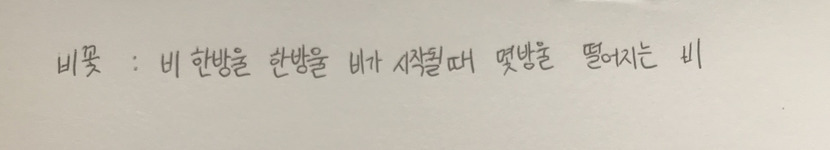 비꽃 : 비 한방울 한방울 비가 시작될때 몇방울 떨어지는 비